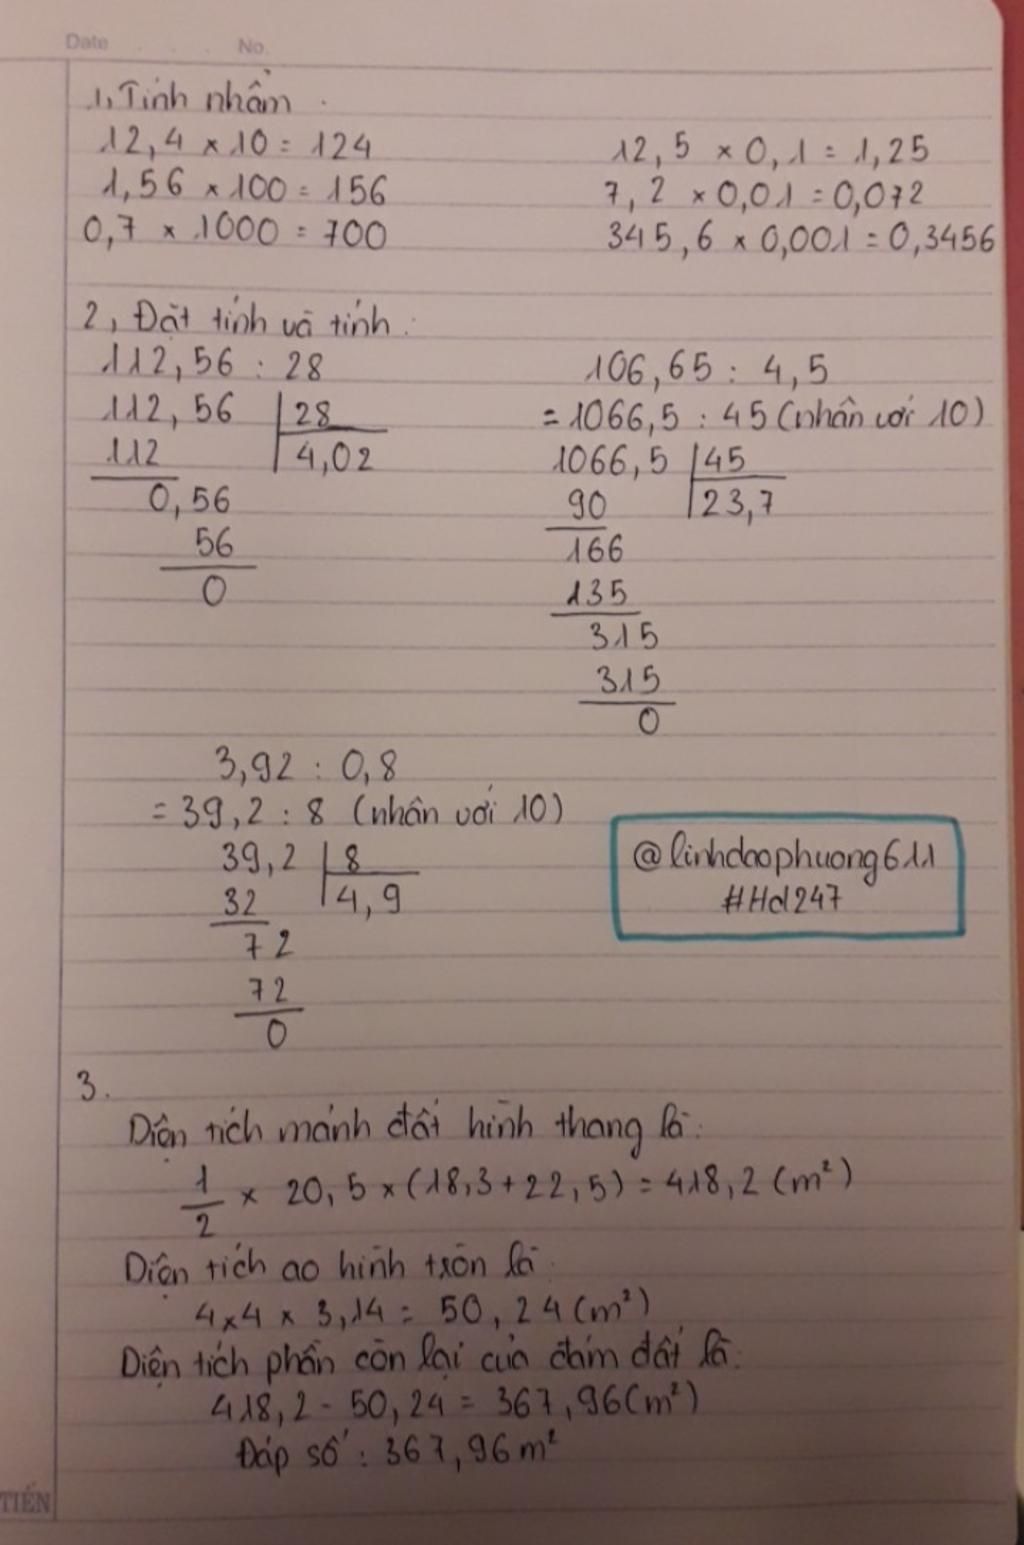 Date . . . No.
1, Tính nhẩm .
12,4 × 10 = 124
1,56 × 100 = 156
0,7 × 1000 = 700
12,5 × 0,1 = 1,25
7,2 × 0,01 = 0,072
345,6 × 0,001 = 0,3456
2, Đặt tính và tính :
112,56 : 28
112,56 28
112 4,02
0,56
56
0
106,65 : 4,5
= 1066,5 : 45 (nhân với 10)
1066,5 45
90 23,7
166
135
315
315
0
3,92 : 0,8
= 39,2 : 8 (nhân với 10)
39,2 8
32 4,9
72
72
0
@linhdaophuong611
#Hd247
3.
Diện tích mảnh đất hình thang là :
1/2 × 20,5 × (18,3 + 22,5) = 418,2 (m²)
Diện tích ao hình tròn là :
4 × 4 × 3,14 = 50,24 (m²)
Diện tích phần còn lại của đám đất là :
418,2 - 50,24 = 367,96 (m²)
Đáp số : 367,96 m²
TIẾN